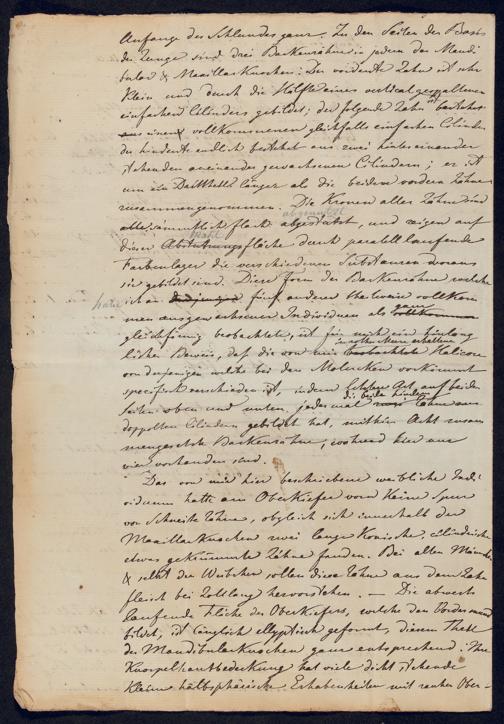 Anfange des Schlundes ganz. Zu den Seiten der Basis
der Zunge sind drei Backenzähne in jedem der Mandi
bular & Maxillar Knochen: Der vorderste Zahn ist sehr
klein und durch die Hälfte eines vertical gespaltenen
einfachen Cilinders gebildet; der folgende Zahn bestehet
aus einem vollkommenen gleichfalls einfachen Cilinder
der hinderste endlich bestehet aus zwei hintereinander
stehenden aneinander gewachsenen Cilindern; er ist
um ein Dritttheil länger als die beiden vordern Zähne
zusammengenommen. Die Kronen aller Zähne sind
alle sämmtlich flach abgestutzt, und zeigen auf
abgenutzt
dieser Abstutzungsfläche durch paralell laufende
Farbenlager die verschiedenen Substanzen woraus
sie gebildet sind. Diese Form der Backenzähne welche
ich an fünf anderen theilweise vollkom
habe
men ausgewachsenen Individuen als vollkommen
ganz
gleichförmig beobachtete, ist für mich ein hinläng
licher Beweis, daß die von mir beobachtete Halicore
im rothen Meere
von derjenigen welche bei den Molucken vorkömmt
specifisch verschieden ist, indem letztere Art, auf beiden
Seiten oben und unten jedesmal Zähne aus
die beide hintere
doppelten Cilindern gebildet hat, mithin Acht zusam
mengesetzte Backenzähne, während hier nur
vier vorhanden sind.
Das von mir hier beschriebene weibliche Indi
viduum hatte am OberKiefer vorn keine Spur
von Schneide Zähne, obgleich sich innerhalb der
Maxillarknochen zwei lange Konische, cilindrische
etwas gekrümmte Zähne fanden. Bei alten Männchen
& selbst den Weibchen sollen diese Zähne aus dem Zahn
fleisch bei Zolllang hervorstehen. — Die abwerts
laufende Fläche des OberKiefers, welche den Vordermund
bildet, ist länglich elliptisch geformt, diesem Theile
der Mandibularknochen ganz entsprechend. Ihre
Knorpelhautbedeckung hat viele dicht stehende
kleine halbsphärische Erhabenheiten mit rauher Ober-